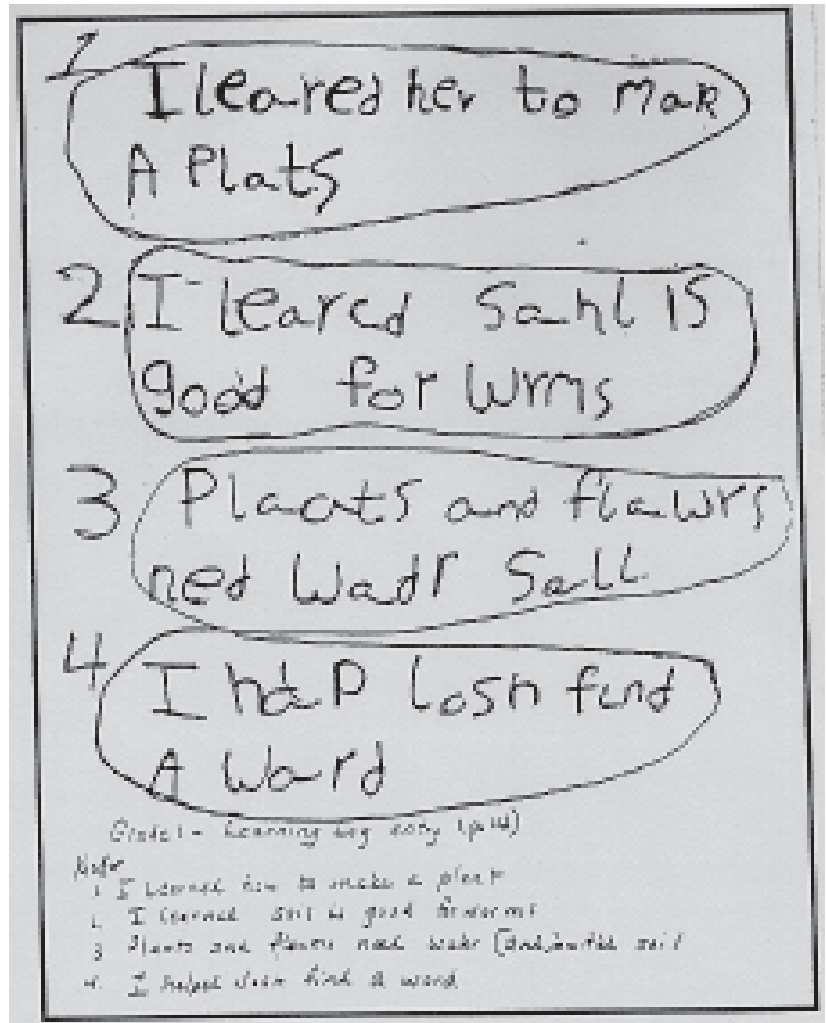 1 I leared her to mak
A Plats
2 I leared Sahl is
good for wrms
3 Placts and flawrs
ned Wadr Sall
4 I hap losh find
A Ward
Grade 1 - Learning Log entry
1. I learned how to make a plant
2. I learned soil is good for worms
3 Plants and flowers need water [and] soil
4. I helped find a word